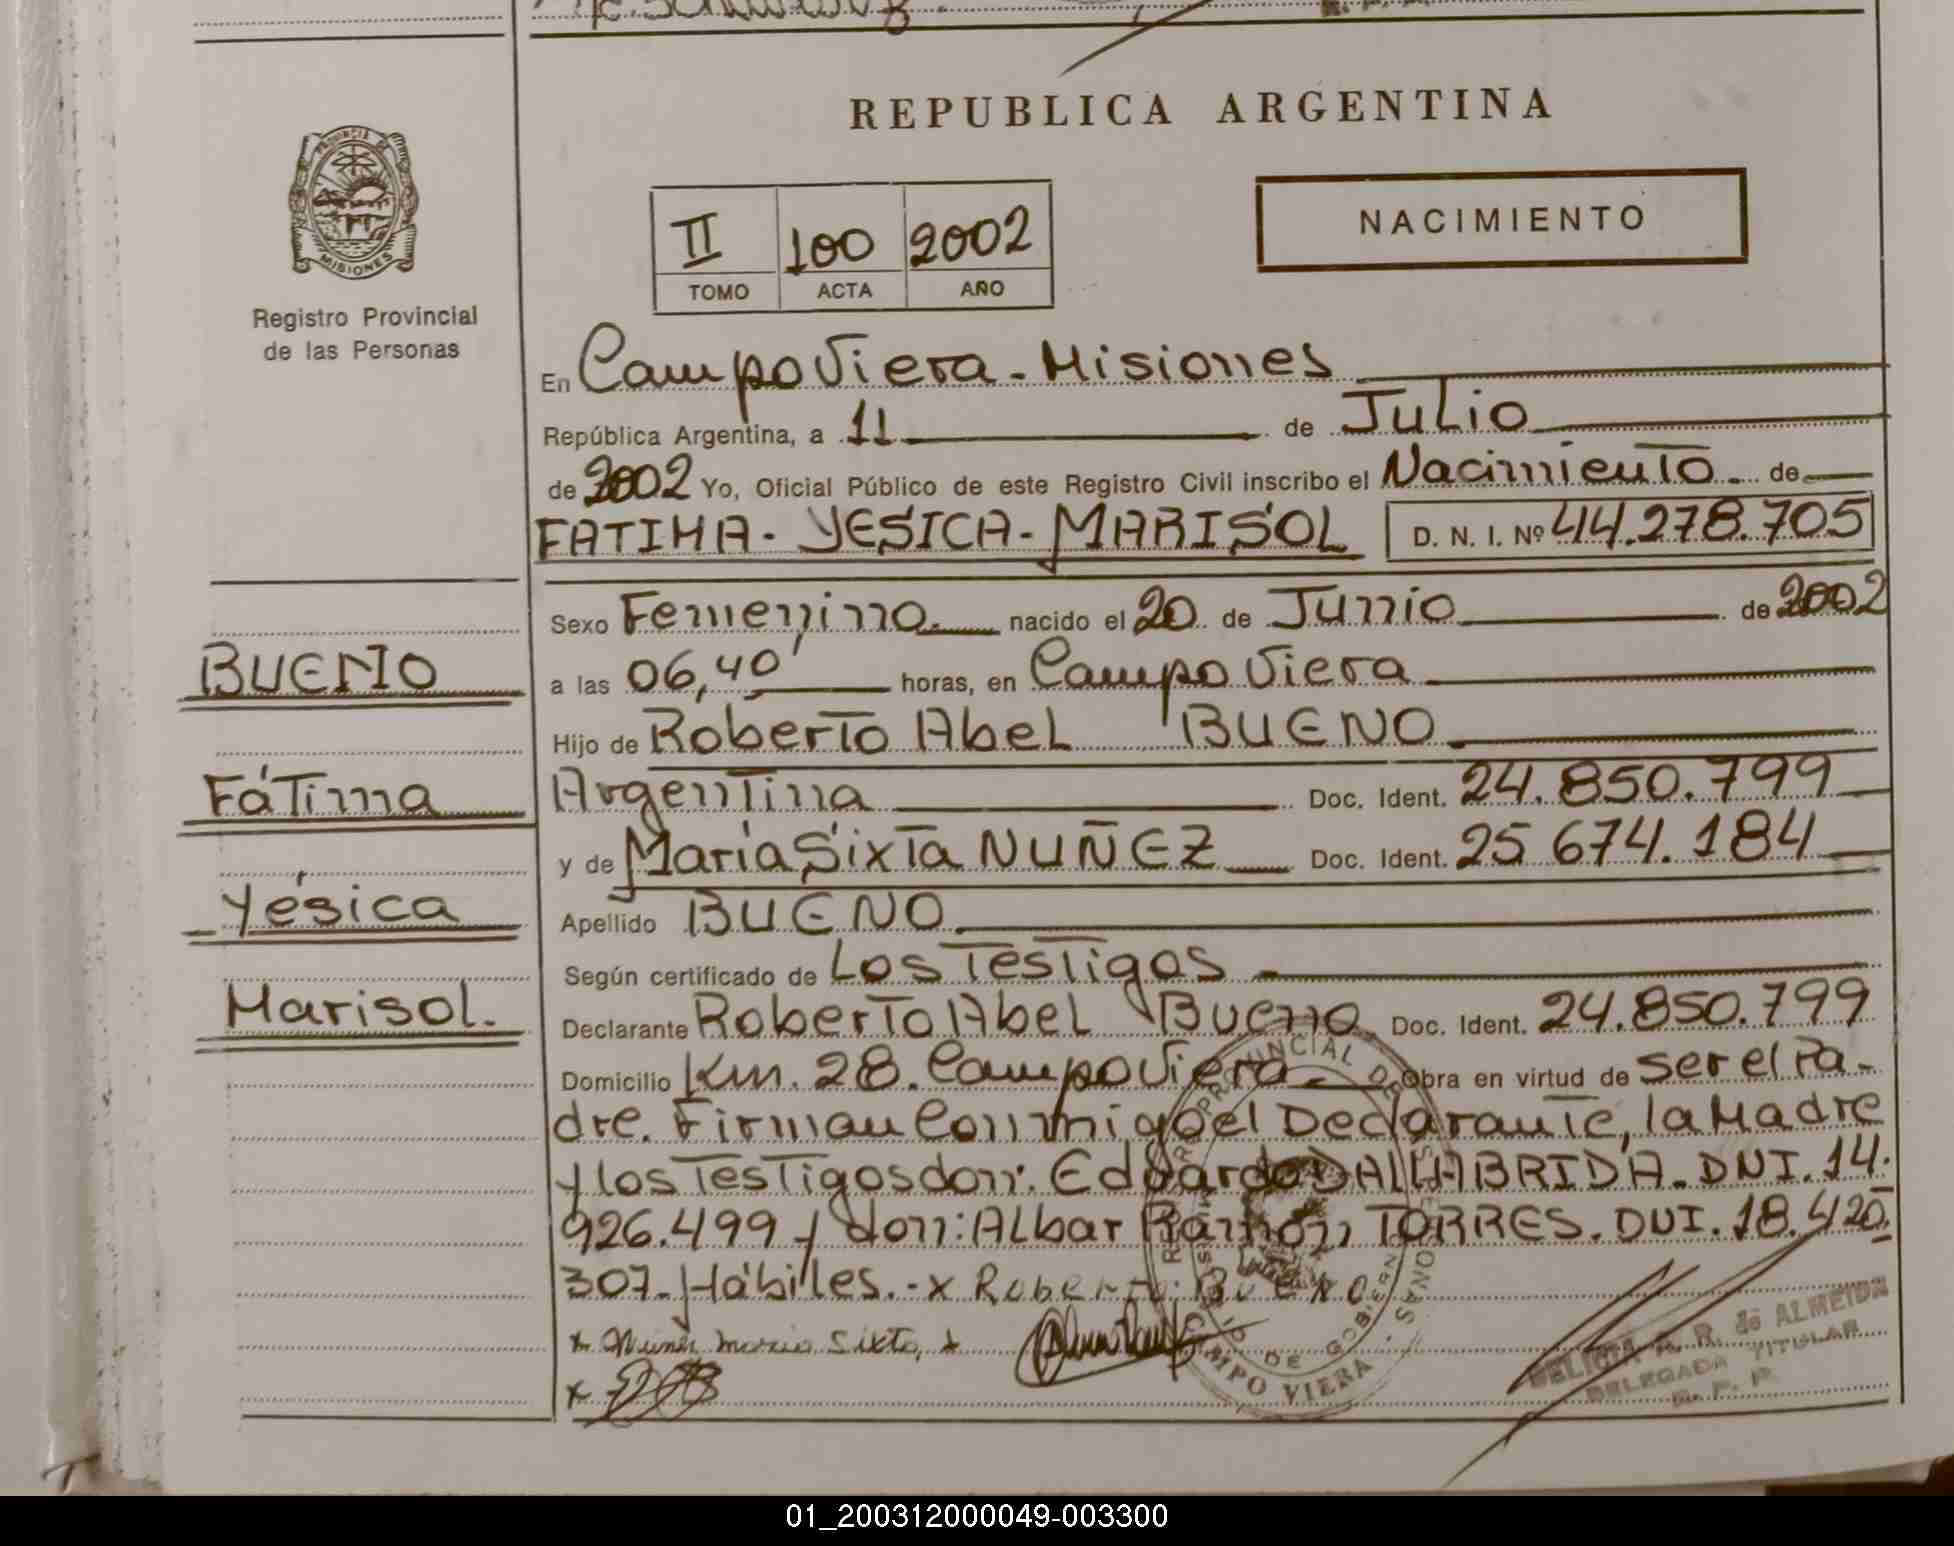 REPUBLICA ARGENTINA
PROVINCIA DE
MISIONES
Registro Provincial
de las Personas
NACIMIENTO
II 100 2002
TOMO ACTA AÑO
En Campo Viera - Misiones
República Argentina, a 11 de Julio
de 2002 Yo, Oficial Público de este Registro Civil inscribo el Nacimiento de
FATIMA - YESICA - MARISOL D. N. I. Nº 44.278.705
Sexo Femenino. nacido el 20 de Junio de 2002
BUENO
a las 06,40' horas, en Campo Viera
Hijo de Roberto Abel BUENO
Fátima
Argentina Doc. Ident. 24.850.799
y de María Sixta NUÑEZ Doc. Ident. 25 674.184
Yésica
Apellido BUENO
Según certificado de Los Testigos
Marisol.
Declarante Roberto Abel Bueno Doc. Ident. 24.850.799
Domicilio Km. 28. Campo Viera Obra en virtud de ser el Pa-
dre. Firman Conmigo el Declarante, la Madre
y los Testigos don: Eduardo DALLABRIDA. DNI. 14.
926.499 y don: Albar Ramón TORRES. DNI. 18.420.
307- Hábiles. - x Roberto. BUENO
x Nuñez maria Sixta, x
x
DELICIA A. R. de ALMEIDA
DELEGADA TITULAR
R. P. P.
CAMPO VIERA
01_200312000049-003300